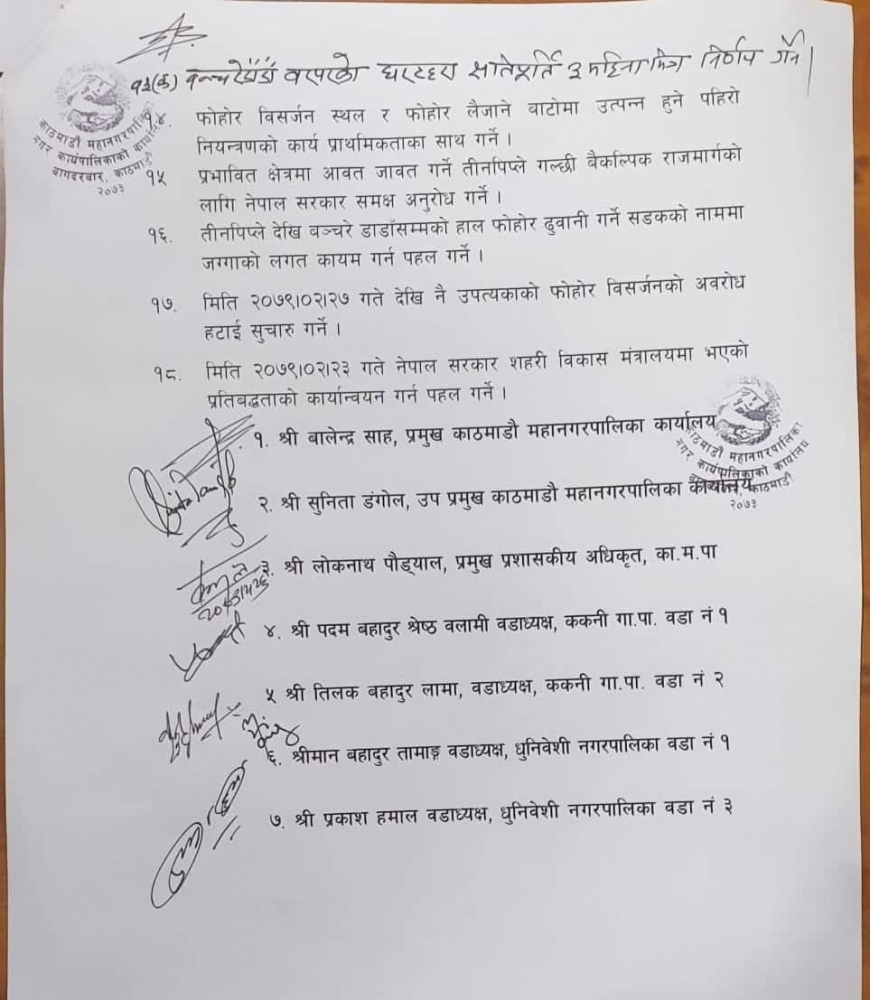 १३(क) बन्चरेडाँडा वरपरको घरटहरा क्षतिपूर्ति ३ महिना भित्र निर्णय गर्ने।
काठमाडौं महानगरपालिका
नगर कार्यपालिकाको कार्यालय
बागदरबार, काठमाडौं
२०७३
१४. फोहोर विसर्जन स्थल र फोहोर लैजाने बाटोमा उत्पन्न हुने पहिरो
नियन्त्रणको कार्य प्राथमिकताका साथ गर्ने ।
१५ प्रभावित क्षेत्रमा आवत जावत गर्ने तीनपिप्ले गल्छी वैकल्पिक राजमार्गको
लागि नेपाल सरकार समक्ष अनुरोध गर्ने ।
१६. तीनपिप्ले देखि वञ्चरे डाडाँसम्मको हाल फोहोर ढुवानी गर्ने सडकको नाममा
जग्गाको लगत कायम गर्न पहल गर्ने ।
१७. मिति २०७९।०२।२७ गते देखि नै उपत्यकाको फोहोर विसर्जनको अवरोध
हटाई सुचारु गर्ने ।
१८. मिति २०७९।०२।२३ गते नेपाल सरकार शहरी विकास मंत्रालयमा भएको
प्रतिबद्धताको कार्यान्वयन गर्न पहल गर्ने ।
१. श्री बालेन्द्र साह, प्रमुख काठमाडौ महानगरपालिका कार्यालय
काठमाडौं महानगरपालिका
नगर कार्यपालिकाको कार्यालय
काठमाडौं
२०७३
२. श्री सुनिता डंगोल, उप प्रमुख काठमाडौ महानगरपालिका कार्यालय
३. श्री लोकनाथ पौड्याल, प्रमुख प्रशासकीय अधिकृत, का.म.पा
४. श्री पदम बहादुर श्रेष्ठ वलामी वडाध्यक्ष, ककनी गा.पा. वडा नं १
५ श्री तिलक बहादुर लामा, वडाध्यक्ष, ककनी गा.पा. वडा नं २
६. श्रीमान बहादुर तामाङ्ग वडाध्यक्ष, धुनिवेशी नगरपालिका वडा नं १
७. श्री प्रकाश हमाल वडाध्यक्ष, धुनिवेशी नगरपालिका वडा नं ३